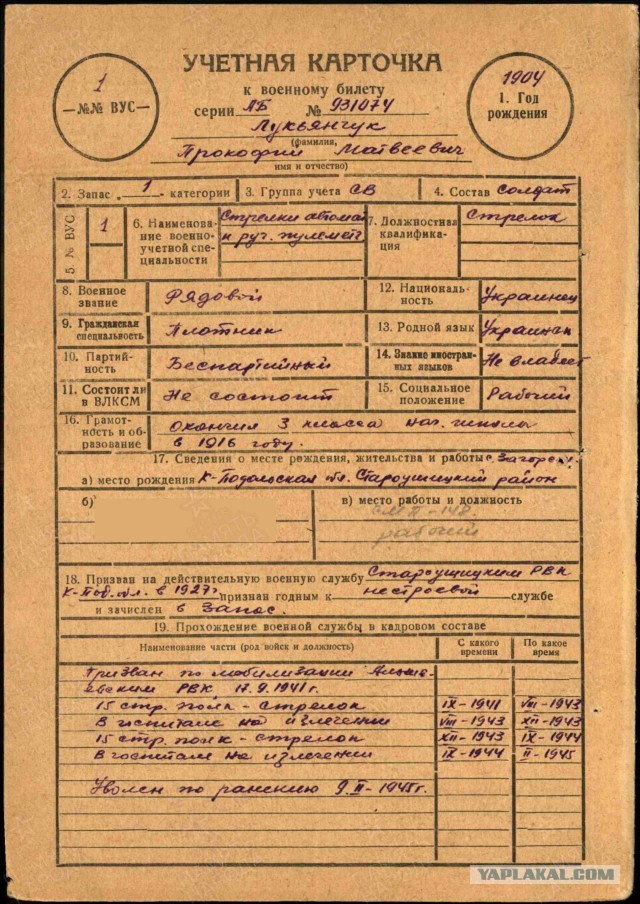 УЧЕТНАЯ КАРТОЧКА
к военному билету
1
—№№ ВУС—
серии ЛБ № 931074
1904
1. Год
рождения
Лукьянчук
(фамилия,
Прокофий Матвеевич
имя и отчество)
2. Запас 1 категории 3. Группа учета СВ 4. Состав солдат
5. № ВУС 1
6. Наименова-
ние военно-
учетной спе-
циальности
Стрелки автомат
и руч. пулемет
7. Должностная
квалифика-
ция
Стрелок
8. Военное
звание
Рядовой
12. Националь-
ность
Украинец
9. Гражданская
специальность
Плотник
13. Родной язык
10. Партий-
ность
Беспартийный
14. Знание иностран-
ных языков
Не владеет
11. Состоит ли
в ВЛКСМ
Не состоит
15. Социальное
положение
Рабочий
16. Грамот-
ность и об-
разование
окончил 3 класса нач. школы
в 1916 году.
17. Сведения о месте рождения, жительства и работы
а) место рождения К-Подольская обл. Староушицкий район
б)
в) место работы и должность
рабочий
18. Призван на действительную военную службу Староушицким РВК
К-Под. обл. в 1927г признан годным к нестроевой службе
и зачислен в запас.
19. Прохождение военной службы в кадровом составе
Наименование части (род войск и должность)
С какого
времени
По какое
время
Призван по мобилизации
РВК 17.9.1941г.
15 стр. полк - стрелок IX-1941 VIII-1943
В госпитале на излечении VIII-1943 XII-1943
15 стр. полк - стрелок XII-1943 IX-1944
В госпитале на излечении IX-1944 II-1945
Уволен по ранению 9.II-1945г.
YAPLAKAL.COM